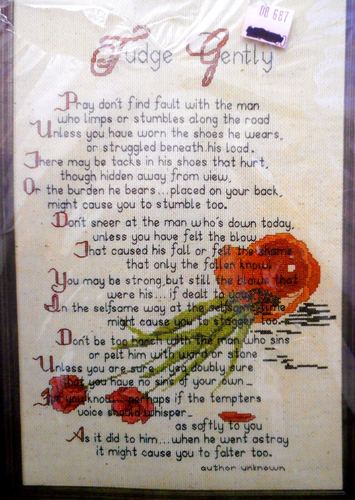 OB 687
Judge Gently
Pray don't find fault with the man
who limps or stumbles along the road
Unless you have worn the shoes he wears,
or struggled beneath his load.
There may be tacks in his shoes that hurt,
though hidden away from view,
Or the burden he bears...placed on your back,
might cause you to stumble too.
Don't sneer at the man who's down today,
unless you have felt the blow
That caused his fall or felt the shame
that only the fallen know.
You may be strong, but still the blows that
were his... if dealt to you
In the selfsame way at the selfsame time
might cause you to stagger too.
Don't be too harsh with the man who sins
or pelt him with word or stone
Unless you are sure... yea doubly sure
that you have no sins of your own...
For you know... perhaps if the tempters
voice should whisper...
as softly to you
As it did to him...when he went astray
it might cause you to falter too.
author unknown